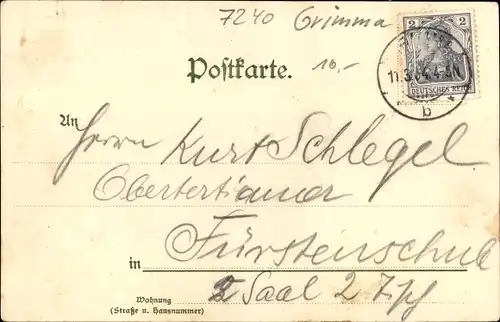 7240 Grimma
2 2
Postkarte.
10.-
DEUTSCHES REICH
11.3. 4.
b
An
Herrn Kurt Schlegel
Obertertianer
Fürstenschule
in
Wohnung
(Straße u. Hausnummer)
Saal 2